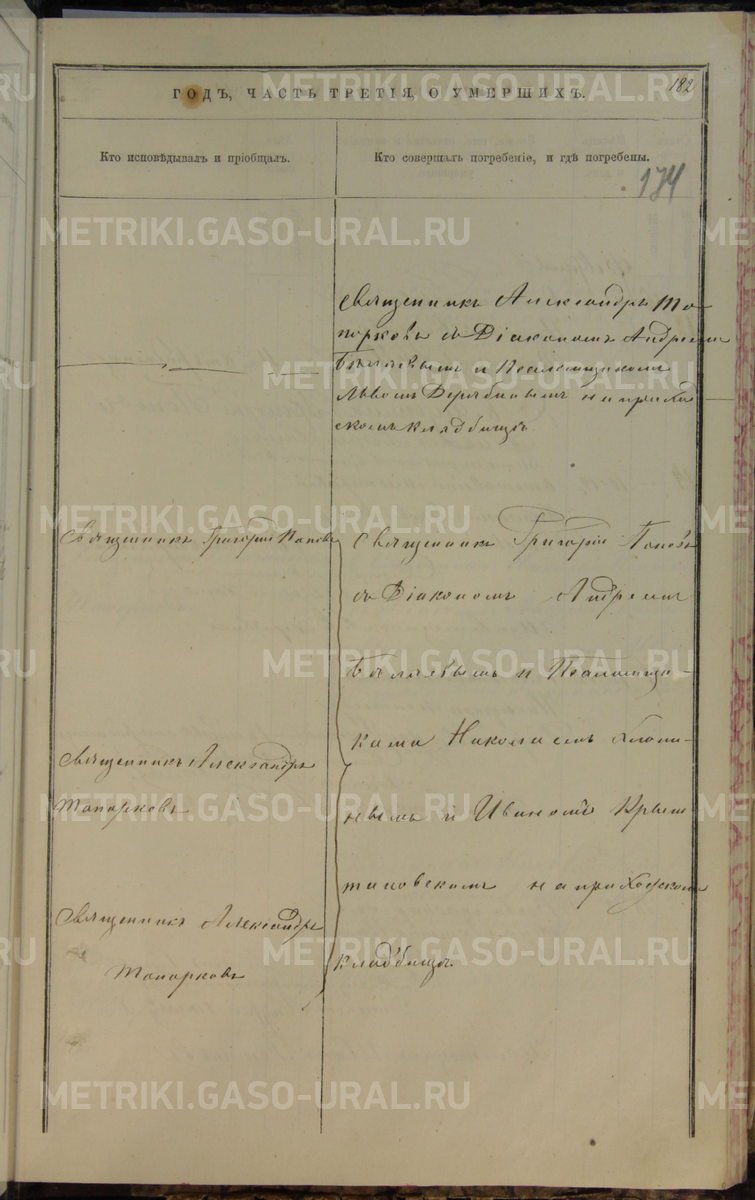 182
ГОДЪ, ЧАСТЬ ТРЕТІЯ, О УМЕРШИХЪ.
Кто исповѣдывалъ и пріобщалъ.
Кто совершалъ погребеніе, и гдѣ погребены.
174
Священникъ Александръ То-
порковъ съ Діакономъ Андреемъ
Бѣляевымъ и Псаломщикомъ
Львомъ Дерябинымъ на приход-
скомъ кладбищѣ
Священникъ Григорій Поповъ
Священникъ Григорій Поповъ
съ Діакономъ Андреемъ
Бѣляевымъ и Псаломщи-
ками Николаемъ
нымъ и Иваномъ
на приходскомъ
кладбищѣ.
Священникъ Александръ
Топорковъ
Священникъ Александръ
Топорковъ
METRIKI.GASO-URAL.RU